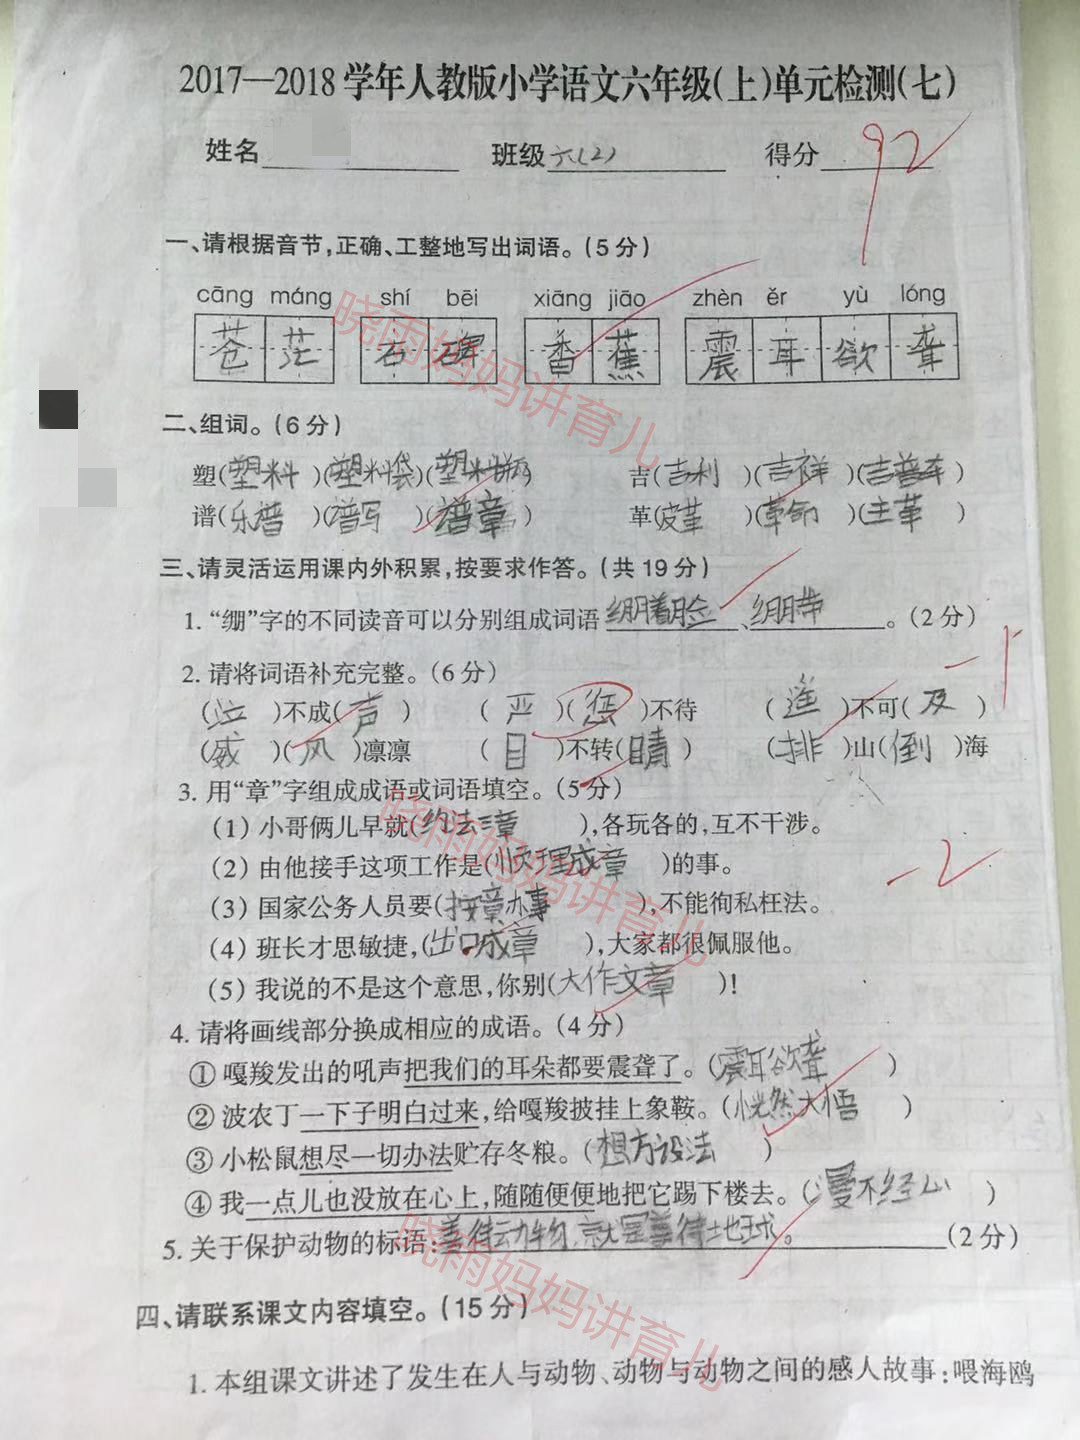 2017—2018学年人教版小学语文六年级(上)单元检测(七)
姓名 班级六(2) 得分92
一、请根据音节,正确、工整地写出词语。(5分)
cāng máng shí bēi xiāng jiāo zhèn ěr yù lóng
苍茫 石碑 香蕉 震耳欲聋
二、组词。(6分)
塑(塑料)(塑料袋)(塑料瓶) 吉(吉利)(吉祥)(吉普车)
谱(乐谱)(谱写)(谱章) 革(皮革)(革命)(主革)
三、请灵活运用课内外积累,按要求作答。(共19分)
1.“绷”字的不同读音可以分别组成词语绷着脸、绷带。(2分)
-1
2.请将词语补充完整。(6分)
(泣)不成(声) (严)(惩)不待 (遥)不可(及)
(威)(风)凛凛 (目)不转(睛) (排)山(倒)海
3.用“章”字组成成语或词语填空。(5分)
(1)小哥俩儿早就(约法三章),各玩各的,互不干涉。
(2)由他接手这项工作是(顺理成章)的事。
-2
(3)国家公务人员要(按章办事),不能徇私枉法。
(4)班长才思敏捷,(出口成章),大家都很佩服他。
(5)我说的不是这个意思,你别(大作文章)!
4.请将画线部分换成相应的成语。(4分)
①嘎羧发出的吼声把我们的耳朵都要震聋了。(震耳欲聋)
②波农丁一下子明白过来,给嘎羧披挂上象鞍。(恍然大悟)
③小松鼠想尽一切办法贮存冬粮。(想方设法)
④我一点儿也没放在心上,随随便便地把它踢下楼去。(漫不经心)
5.关于保护动物的标语:善待动物,就是善待地球。(2分)
四、请联系课文内容填空。(15分)
1.本组课文讲述了发生在人与动物、动物与动物之间的感人故事:喂海鸥
晓雨妈妈讲育儿
晓雨妈妈讲育儿
晓雨妈妈讲育儿